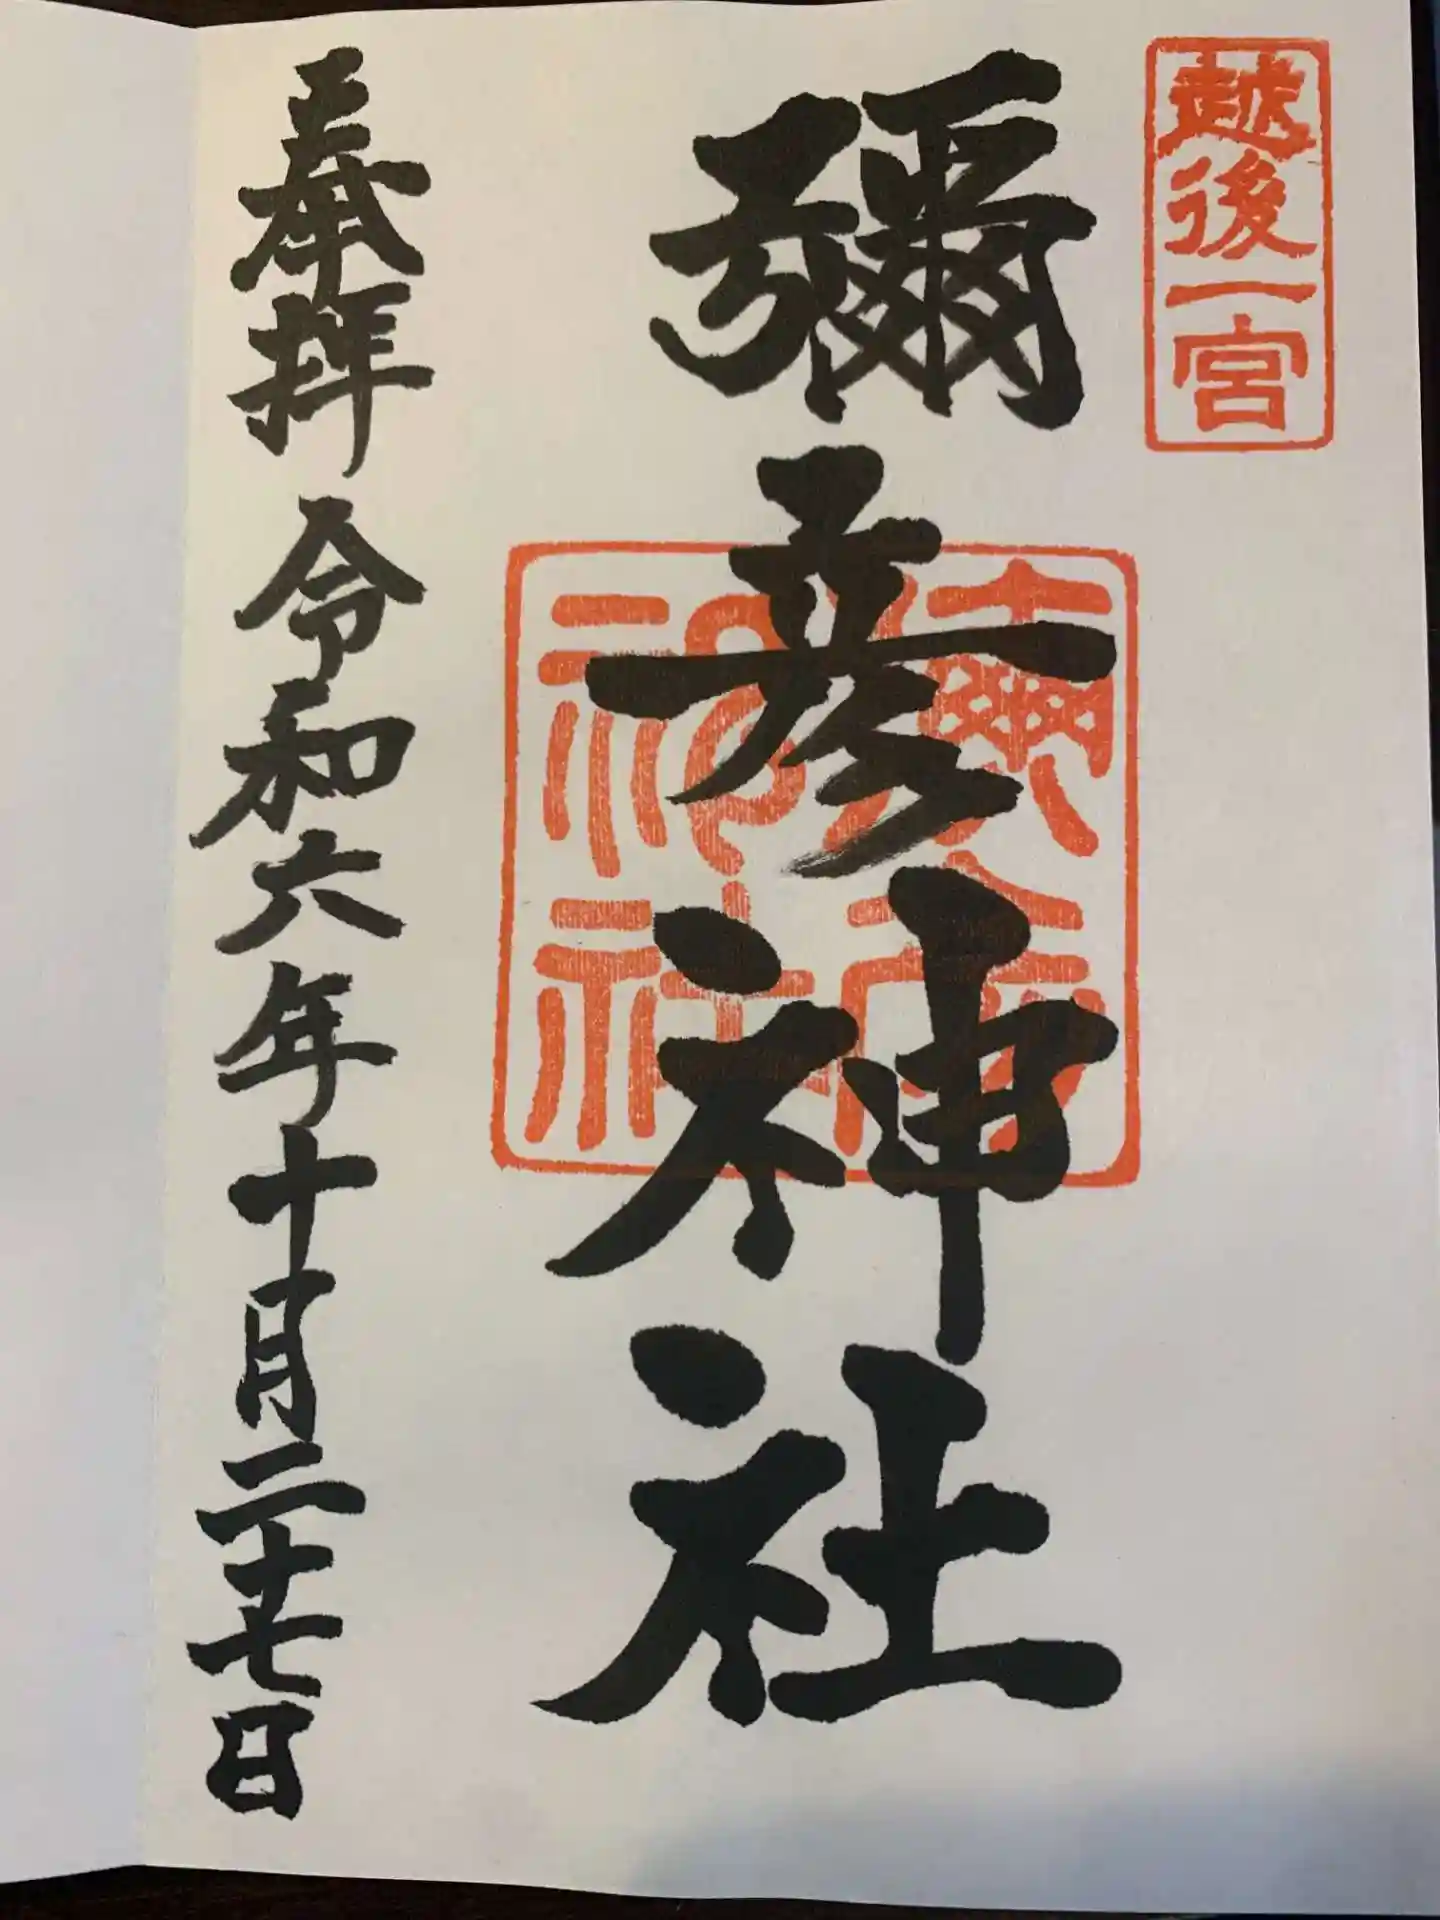 越後一宮
彌彦神社
彌彦神社
奉拝 令和六年十月二十七日